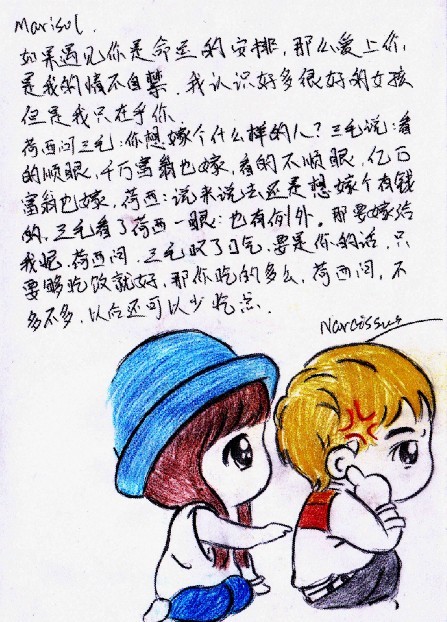 Marisol.
如果遇见你是命运的安排,那么爱上你,
是我的情不自禁.我认识好多很好的女孩
但是我只在乎你.
荷西问三毛:你想嫁个什么样的人?三毛说:看
的顺眼,千万富翁也嫁,看的不顺眼,亿万
富翁也嫁,荷西:说来说去还是想嫁个有钱
的,三毛看了荷西一眼:也有例外。那要嫁给
我呢.荷西问,三毛叹了口气,要是你的话,只
要够吃饭就好,那你吃的多么,荷西问,不
多不多,以后还可以少吃点.
Narcissus